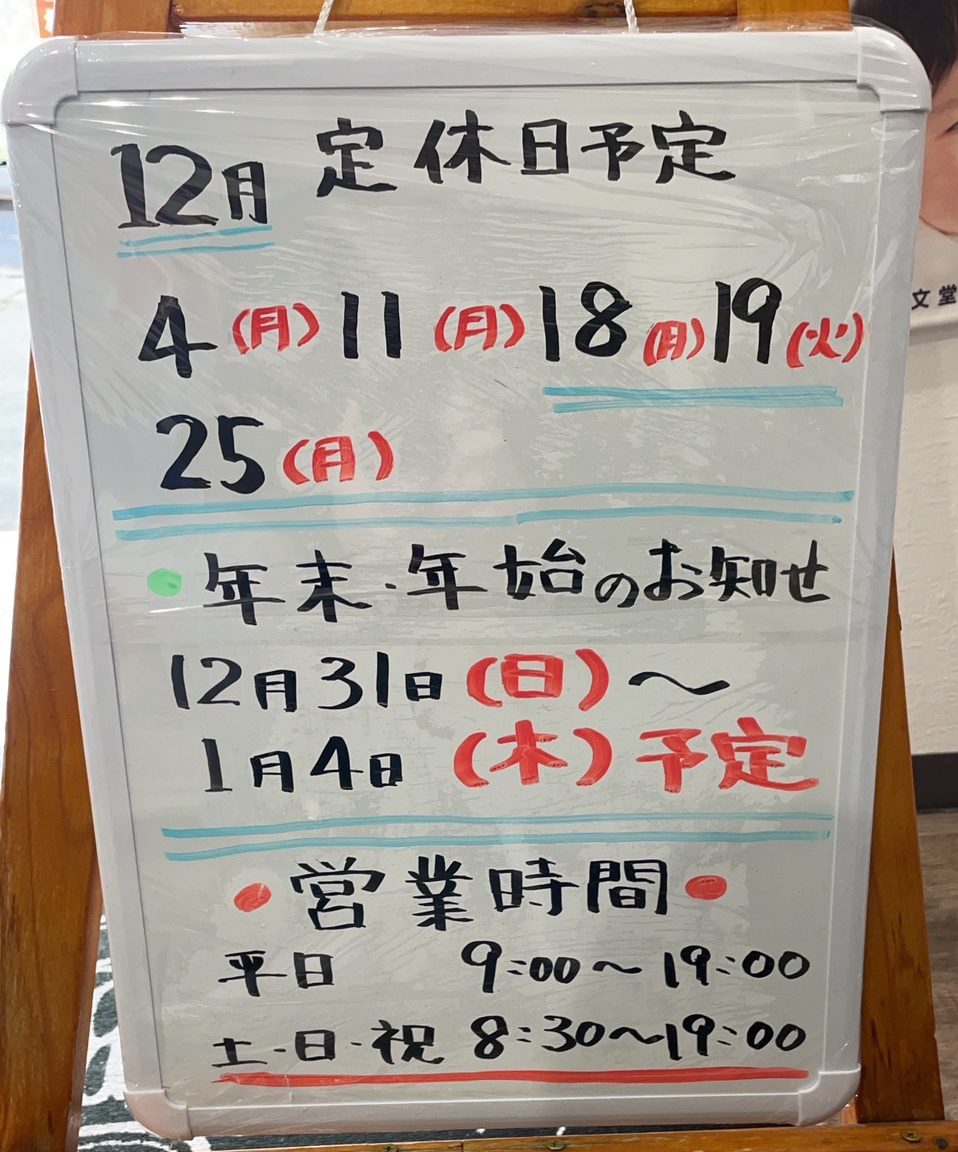 12月 定休日予定
4(月) 11(月) 18(月) 19(火)
25(月)
年末・年始のお知せ
12月31日(日)〜
1月4日(木)予定
営業時間
平日 9:00〜19:00
土・日・祝 8:30〜19:00
文堂